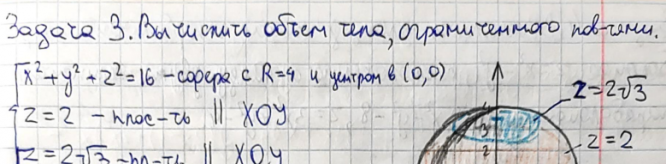 Задача 3. Вычислить объем тела, ограниченного пов-тями.
x²+y²+z²=16 - сфера с R=4 и центром в (0,0)
z=2√3
z=2 - плос-ть || XOY
z=2
z=2√3 - пл-ть || XOY